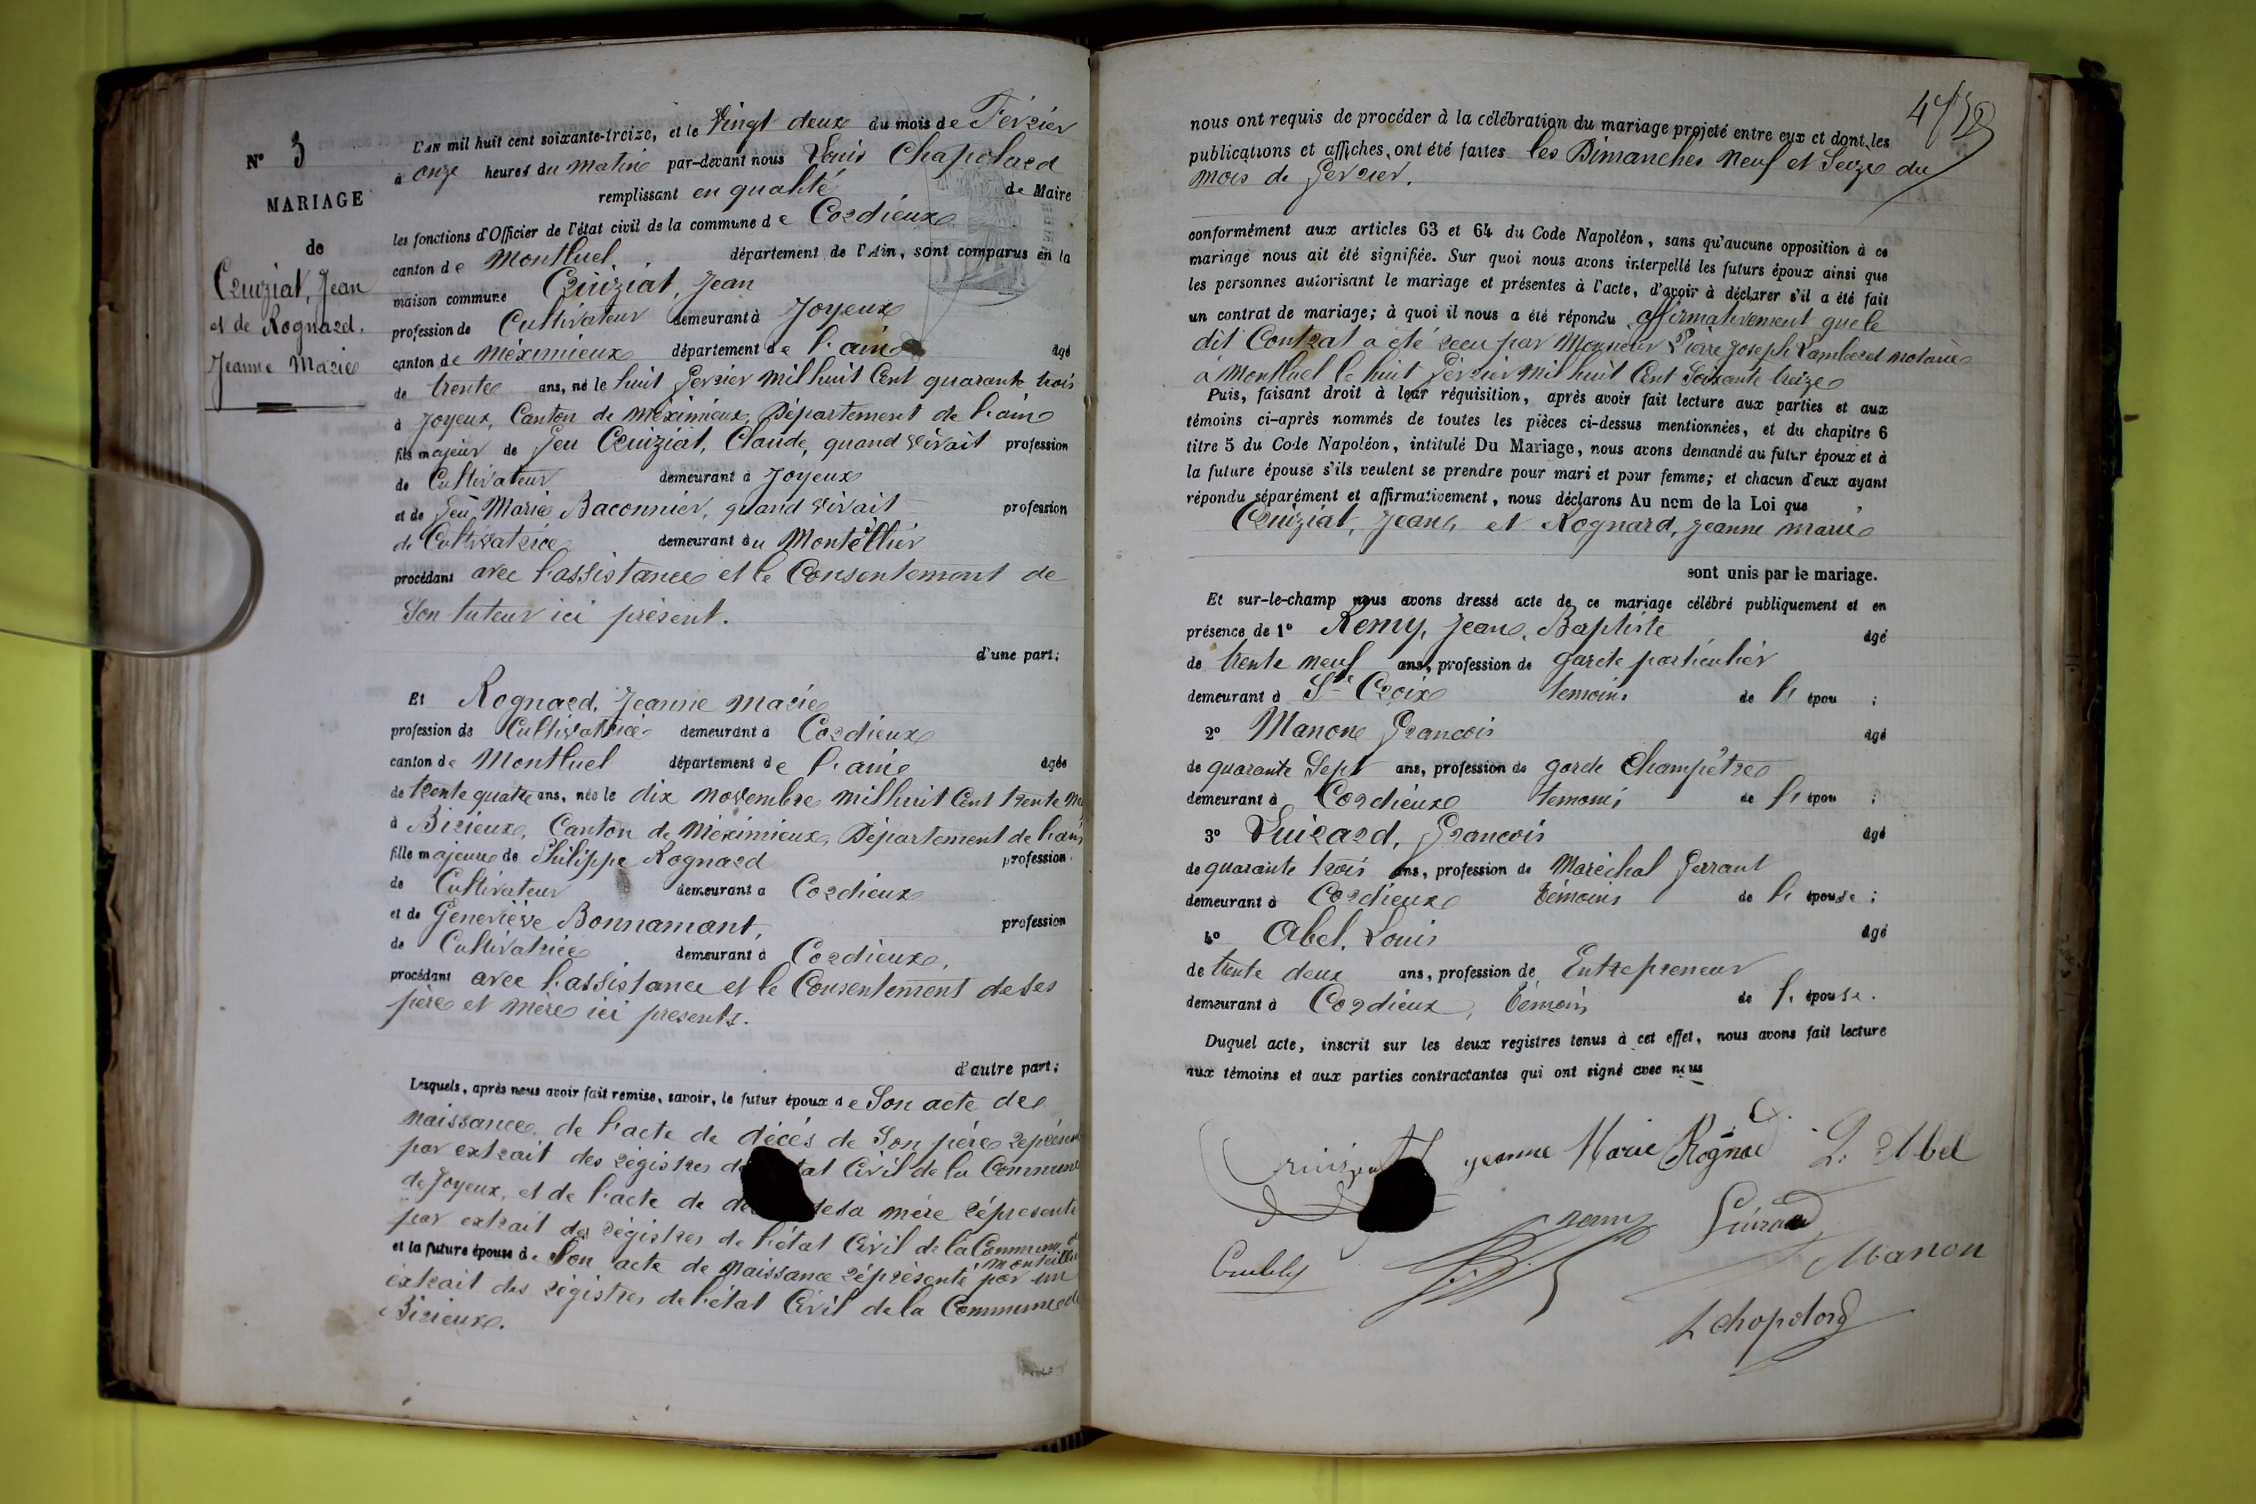 N° 3
MARIAGE
de
Cruiziat, Jean
et de Rognard,
Jeanne Marie
L'AN mil huit cent soixante-treize, et le Vingt deux du mois de Février
à onze heures du matin par-devant nous Louis Chapolard
remplissant en qualité de Maire
les fonctions d'Officier de l'état civil de la commune de Cordieux
canton de Montluel, département de l'Ain, sont comparus en la
maison commune Cruiziat, Jean
profession de Cultivateur demeurant à Joyeux
canton de Méximieux département de l'ain âgé
de trente ans, né le huit fevrier mil huit Cent quarante trois
à Joyeux, Canton de Méximieux, Département de l'ain
fils majeur de feu Cruiziat, Claude, quand vivait profession
de Cultivateur demeurant à Joyeux
et de feu, Marie Baconnier, quand vivait profession
de Cultivatrice demeurant au Montéllier
procédant avec l'assistance et le Consentement de
Son tuteur ici présent.
d'une part;
Et Rognard, Jeanne Marie
profession de Cultivatrice demeurant à Cordieux
canton de Montluel département de l'ain âgée
de trente quatre ans, née le dix novembre mil huit Cent trente
à Birieux, Canton de Méximieux, Département de l'ain
fille majeure de Philippe Rognard profession
de Cultivateur demeurant à Cordieux
et de Geneviève Bonnamant, profession
de Cultivatrice demeurant à Cordieux,
procédant avec l'assistance et le Consentement de ses
père et mère ici presents.
d'autre part;
Lesquels, après nous avoir fait remise, savoir, le futur époux de Son acte de
naissance, de l'acte de décés de Son père représenté
par extrait des régistres de l'état Civil de la Commune
de Joyeux, et de l'acte de de sa mére réprésenté
par extrait des régistres de l'état Civil de la Commune de
Montéllier
et la future épouse de Son acte de naissance réprésenté par un
extrait des régistres de l'état Civil de la Commune de
Birieux.
nous ont requis de procéder à la célébration du mariage projeté entre eux et dont les
publications et affiches, ont été faites les Dimanches neuf et Seize du
mois de fevrier.
conformément aux articles 63 et 64 du Code Napoléon, sans qu'aucune opposition à ce
mariage nous ait été signifiée. Sur quoi nous avons interpellé les futurs époux ainsi que
les personnes autorisant le mariage et présentes à l'acte, d'avoir à déclarer s'il a été fait
un contrat de mariage; à quoi il nous a été répondu affirmativement que le
dit Contrat a été recu par Monsieur Pierre Joseph Lamberet notaire
à Montluel le huit fevrier mil huit Cent Soixante treize
Puis, faisant droit à leur réquisition, après avoir fait lecture aux parties et aux
témoins ci-après nommés de toutes les pièces ci-dessus mentionnées, et du chapitre 6
titre 5 du Code Napoléon, intitulé Du Mariage, nous avons demandé au futur époux et à
la future épouse s'ils veulent se prendre pour mari et pour femme; et chacun d'eux ayant
répondu séparément et affirmativement, nous déclarons Au nom de la Loi que
Cruiziat, Jean, et Rognard, Jeanne marie
sont unis par le mariage.
Et sur-le-champ nous avons dressé acte de ce mariage célébré publiquement et en
présence de 1° Remy, Jean, Baptiste âgé
de trente neuf ans, profession de garde particulier
demeurant à Ste Croix temoins de l' épou ;
2° Manon François âgé
de quarante Sept ans, profession de garde Champêtre
demeurant à Cordieux temoins de l' épou ;
3° Luirard, François âgé
de quarante trois ans, profession de Maréchal ferrant
demeurant à Cordieux témoins de l' épouse ;
4° Abel, Louis âgé
de trente deux ans, profession de Entrepreneur
demeurant à Cordieux, témoin de l' épouse.
Duquel acte, inscrit sur les deux registres tenus à cet effet, nous avons fait lecture
aux témoins et aux parties contractantes qui ont signé avec nous
Cruiziat jeanne Marie Rognard L. Abel
remy Luirard
Manon
L chapolard